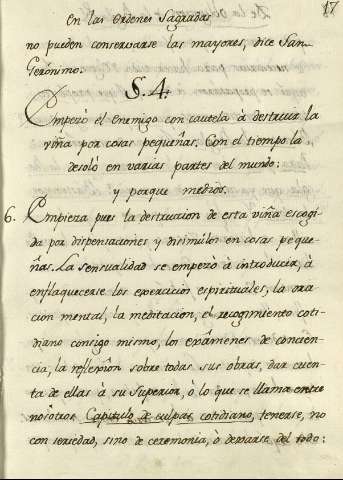 17
En las Ordenes Sagradas
no pueden conservarse las mayores, dice San
Gerónimo.
§. 4.
Empezó el Enemigo con cautela à destruir la
viña por cosas pequeñas. Con el tiempo la
desoló en varias partes del mundo:
y porque medios.
6. Empieza pues la destruccion de esta viña escogi
da por dispensaciones y disimulos en cosas peque
ñas. La sensualidad se empezò à introducir, à
enflaquecerse los exercicios espirituales, la ora
cion mental, la meditacion, el recogimiento coti
diano consigo mismo, los exàmenes de concien
cia, la reflexion sobre todas sus obras, dar cuen
ta de ellas à su Superior, ò lo que se llama entre
nosotros Capitulo de culpas cotidiano, tenerse, no
con seriedad, sino de ceremonia, ò dexarse del todo: